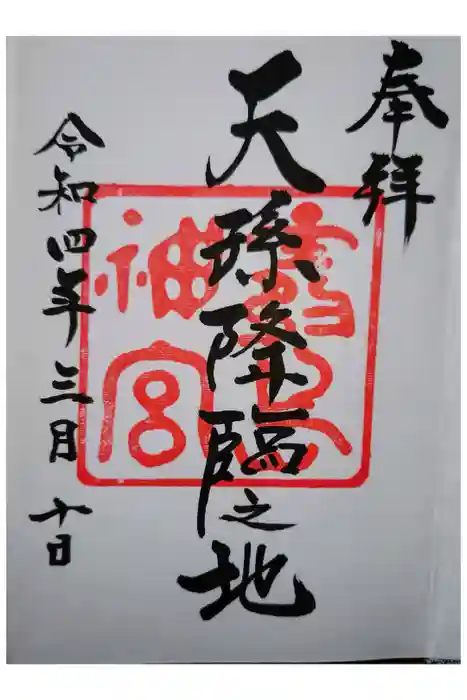 奉拝
天孫降臨之地
神宮
令和四年三月十日